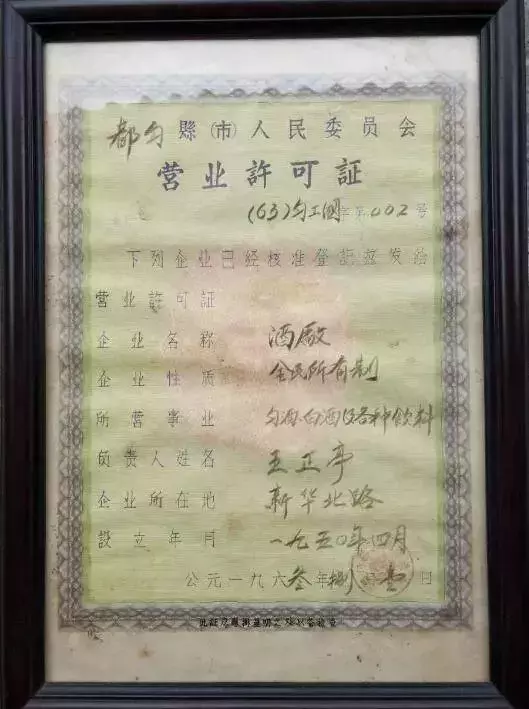 都匀縣(市)人民委员会
营业許可証
(63)匀工國字第002号
下列企业已经核准登記兹发给
营业許可証
企业名称 酒厰
企业性质 全民所有制
所营事业 匀酒.白酒及各种飲料
负责人姓名 王正亭
企业所在地 新华北路
設立年月 一九五〇年四月
公元一九六叁年捌月壹日